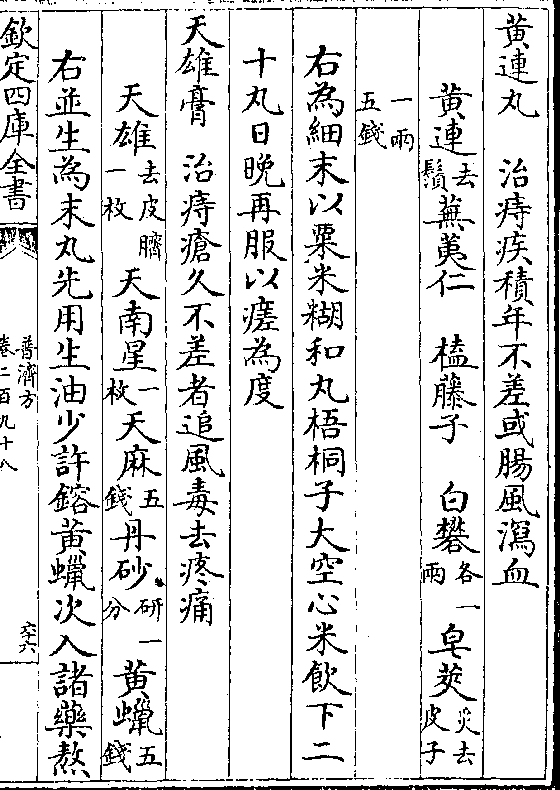 黄連丸　治痔疾積年不差或腸風瀉血
黄連去鬚　蕪荑仁　榼藤子　白礬各一兩　皁莢炙去皮子
一兩五錢
右為細末以粟米糊和丸梧桐子大空心米飲下二
十丸日晚再服以瘥為度
天雄膏　治痔瘡久不差者追風毒去疼痛
天雄去皮臍一枚　天南星一枚　天麻五錢　丹砂研一分　黄蠟五錢
右並生為末丸先用生油少許鎔黄蠟次入諸藥熬
欽定四庫全書
普濟方
卷二百九十八
六六